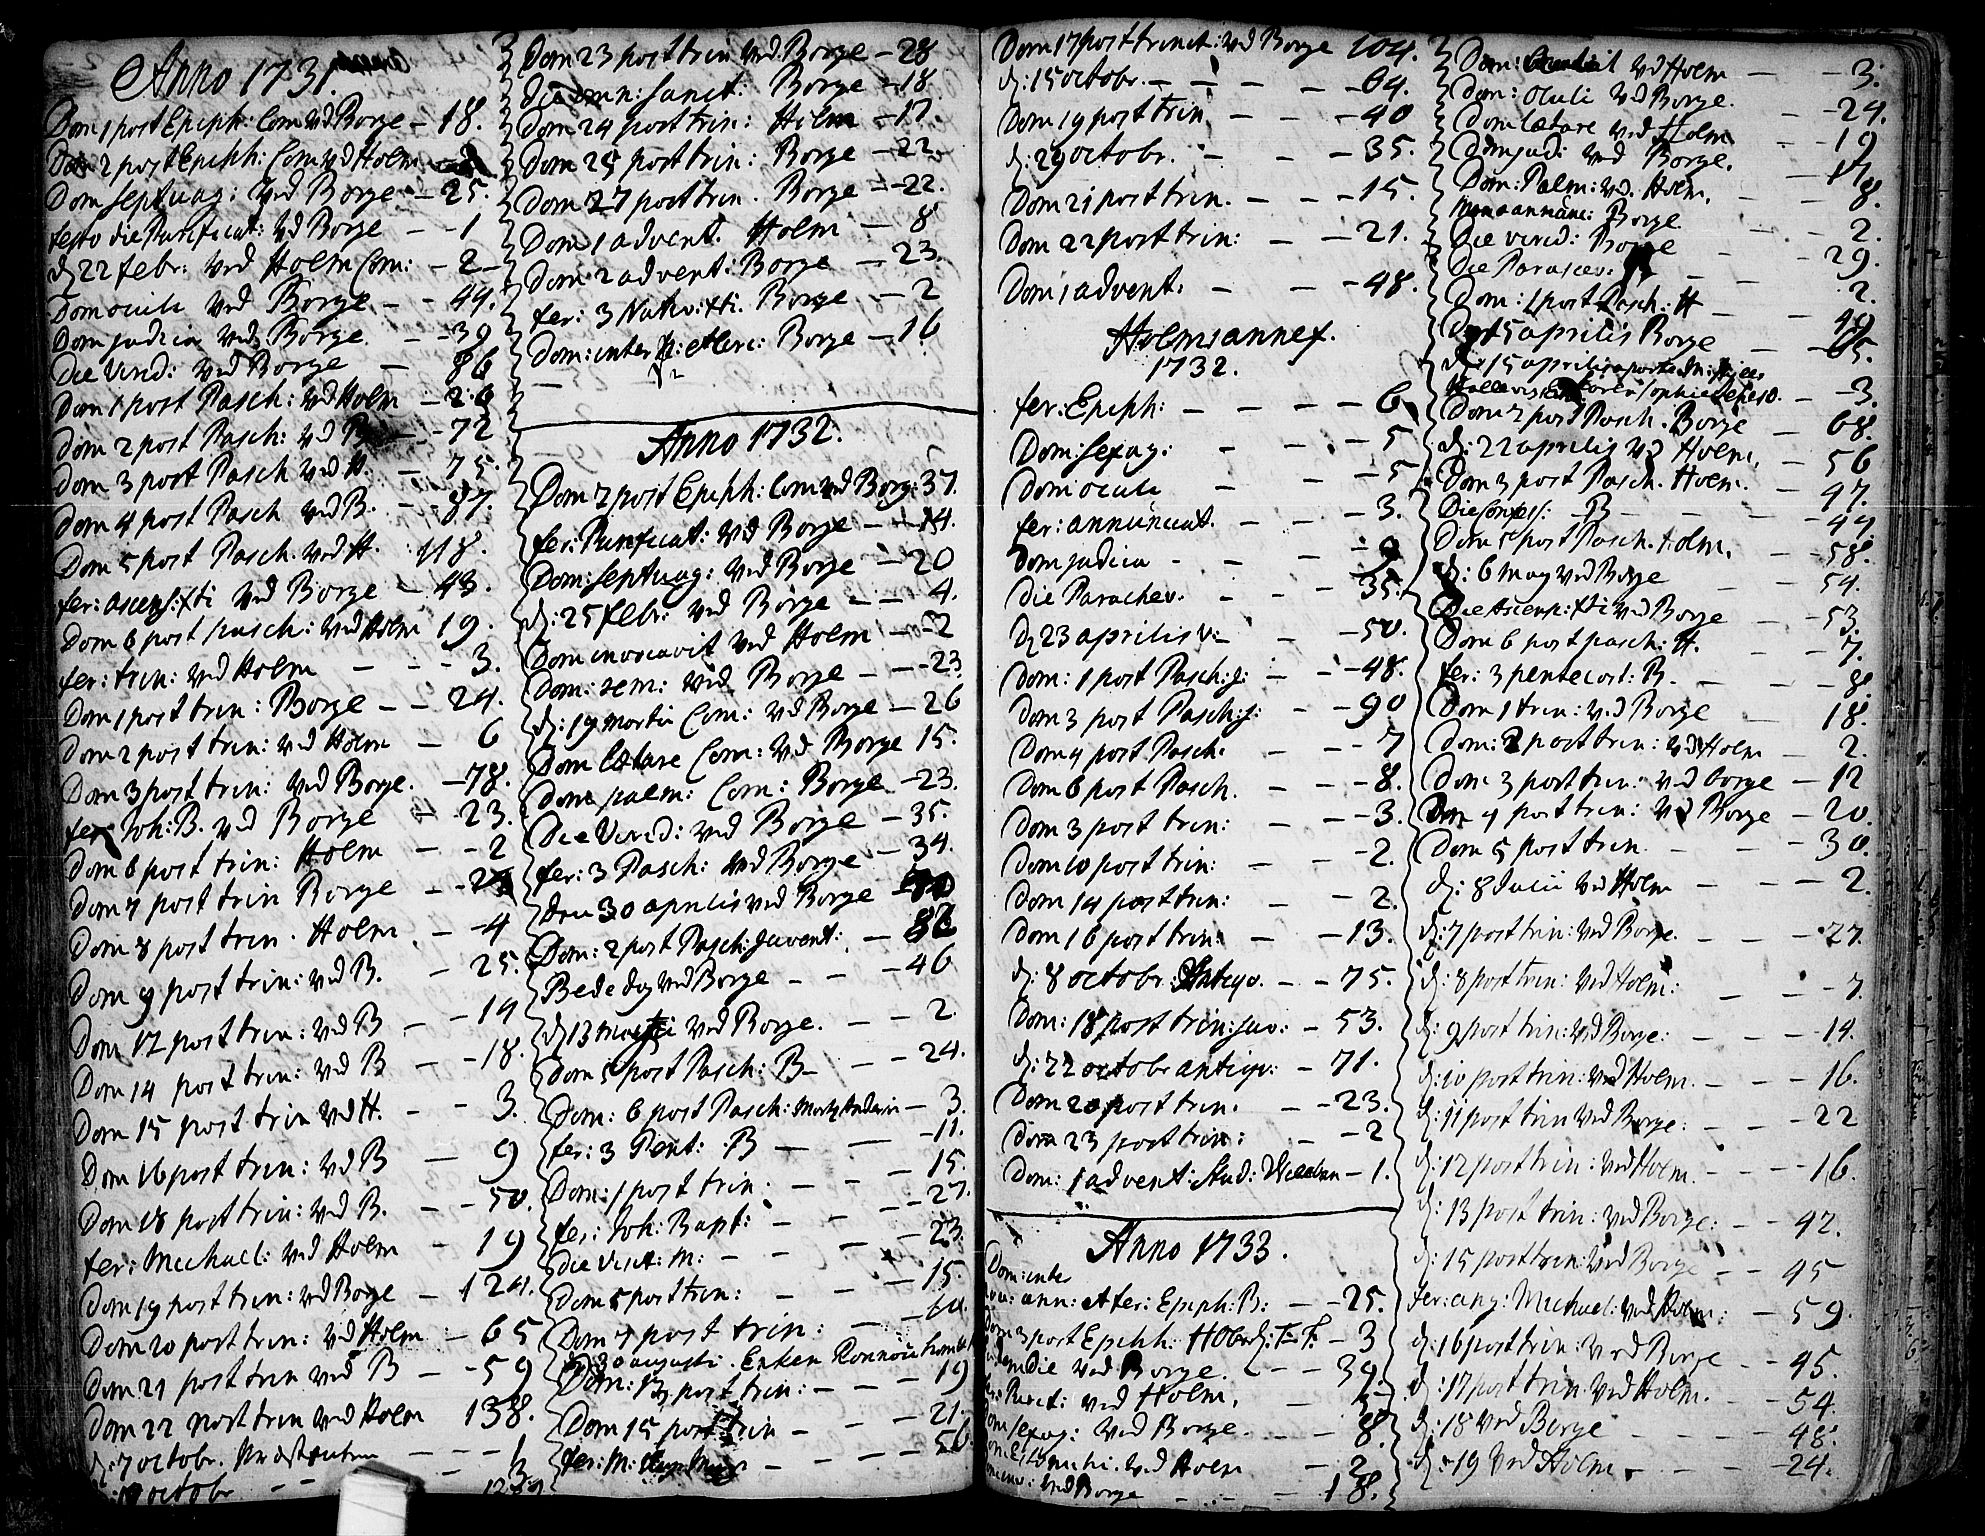 Anno 1731.
Dom 1 post Epiph: Com: vd Borge – 18.
Dom 2 post Epiph: Com vd Holm
Dom Septuag: ved Borge – 25.
festo die Purificat: vd Borge – – 1
d. 22 febr: ved Holm Com: – 2
Dom oculi ved Borge – – 44.
Dom judica ved Borge – – 39
Die Virid: ved Borge – 86
Dom 1 post Pasch: vd Holm – 26
Dom 2 post Pasch: vd B – 72
Dom 3 post Pasch ved H. – 75.
Dom 4 post Pasch ved B. – – 87.
Dom 5 post Pasch. ved H. 118.
fer: ascens: Xti ved Borge – 43.
Dom 6 post pasch: ved Holm 19.
fer: trin: ved Holm – – – 3.
Dom 1 post trin: Borge – – 24.
Dom 2 post trin: ved Holm – 6
Dom 3 post trin: ved Borge. – 78.
fer: Joh: B. vd Borge – 23.
Dom 6 post trin: Holm – – 2
Dom 7 post trin Borge –
Dom 8 post trin. Holm – – 4
Dom 9 post trin: ved B. – 25.
Dom 12 post trin: vd B – – 14
Dom 14 post trin: vd B – – 18.
Dom 15 post trin vd H. – – 3.
Dom 16 post trin: vd B – 9
Dom 18 post trin: ved B. – – 50.
fer: Michael: ved Holm – 19
Dom 19 post trin: vd Borge – 124.
Dom 20 post trin: vd Holm – 65
Dom 21 post trin ved B – – 59
Dom 22 post trin ved Holm 138.
d: 7 octobr. – – – 1
octobr – – 3.
Dom 23 post trin ved Borge – 28
die omn: sanct: Borge – 18
Dom 24 post trin: Holm – 17.
Dom 25 post trin: Borge – 22.
Dom 27 post trin. Borge – – 22.
Dom 1 advent. Holm – 8
Dom 2 advent: Borge – 23.
fer: 3 Nativ: Xti. Borge – – 2
Dom: inter Borge – 16
Anno 1732.
Dom 2 post Epiph: Com ved Borg: 37.
fer: Purificat: ved Borge – – 14.
Dom: Septuag: ved Borge – – 20
d: 25 febr: ved Borge – – 4.
Dom invocavit ved Holm – – 2
Dom: rem: ved Borge – – 23
d: 19 martii Com: vd Borge – 26
Dom lætare Com: vd Borge 15.
Dom palm: Com: Borge – 23.
Die Virid: ved Borge – 35.
fer: 3 Pasch: ved Borge – 34.
den 30 aprilis ved Borge
Dom: 2 post Pasch: juvent: – 86
Bededag ved Borge – – – 46
d 13 ved Borge. – – 2.
Dom 5 post Pasch: B – – 24.
Dom: 6 post Pasch: – 3.
fer: 3 Pent: B – – – 11.
Dom: 1 post trin: – – – 15.
fer: Joh: Bapt: – – – 27.
die Visit: M: – – – 23.
Dom 5 post trin: – – – 15.
Dom 7 post trin: – – 60.
30 augusti. Enken
Dom: 13 post trin: – – – 19
Dom 15 post trin – – – 21.
fer: M: – – 56
Dom 17 post trinit: vd Borge 104.
d: 15 octobr. – – – – 64.
Dom 19 post trin. – – – 40
d: 29 octobr. – – – 35.
Dom 21 post trin. – – – 15.
Dom 22 post trin: – – 21.
Dom 1 advent. – – – 48.
Holms annex.
1732.
fer: Epiph: – – – – 6.
Dom: sexag: – – 5
Dom oculi – – 5
fer: annunciat. – – – 3.
Dom judica – – – 9
die Parachev. – – 35.
d 23 aprilis – – 50.
Dom: 1 post Pasch: j: – – 48.
Dom 3 post Pasch: j: – – 90
Dom 4 post Pasch: – – – 7
Dom 6 post Pasch. – – – 8.
Dom 3 post trin: – – – 3.
Dom 10 post trin: – – – 2.
Dom 14 post trin: – – 2.
Dom 16 post trin: – – 13.
d: 8 octobr: – – 75.
Dom: 18 post trin: juv: – 53.
d: 22 octobr antiqv: – 71.
Dom 20 post trin. – – 23.
Dom 23 post trin: – – 2
Dom: 1 advent: Stud: – 1.
Anno 1733.
Dom: inter
ann: et fer: Epiph: B: – – 25.
3 post Epiph: – 3
die ved Borge. – – 39.
Purit: ved Holm.
sexag: ved Borge. – – 8.
ved Holm – – 2.
ved Borge – – – 18.
Dom: vd Holm – – 3.
Dom: Oculi ved Borge. – 24.
Dom lætare ved Holm – – 19
Dom jud: ved Borge. – 17
Dom: Palm: vd. Holm. – – 8.
Borge – – 2.
Die virid: Borge – – 29.
Die Parascev: – – 2.
Dom: 1 post Pasch: H – –
15 aprilis Borge – 65.
d: 15 aprilis – 3.
Dom 2 post Pasch. Borge – 68.
d: 22 aprilis vd Holm. – 56
Dom 3 post Pasch. Holm. – 47.
B – – – 44.
Dom 5 post Pasch. Holm. – – 58.
d: 6 may ved Borge – 54.
Die Ascens: Xti ved Borge – – 53.
Dom 6 post pasch: H. – – 7.
fer: 3 pentecost: B. – – 8.
Dom 1 trin: vd Borge – – 18.
Dom: 2 post trin: vd Holm – 2.
Dom 3 post trin: ved borge – 12
Dom 4 post trin: vd Borge – 20.
Dom 5 post trin. – – – 30.
d: 8 Julii ved Holm – – – 2.
d: 7 post trin: ved Borge. – – – 27.
d: 8 post trin: ved Holm: – – – 7.
d: 9 post trin: ved Borge: – – – 14.
d: 10 post trin: ved Holm. – – – 16.
d: 11 post trin ved Borge: – – – 22
d: 12 post trin: ved Holm. – – – 16.
d: 13 post trin: ved Borge: – – 42.
d: 15 post trin: ved Borge – – 45
fer: ang: Michael: ved Holm: – 59.
d: 16 post trin: ved Borge – – 45.
d: 17 post trin: ved Holm. – – 54.
d: 18 ved Borge – – – 48.
d: 19 ved Holm. – – – 24.